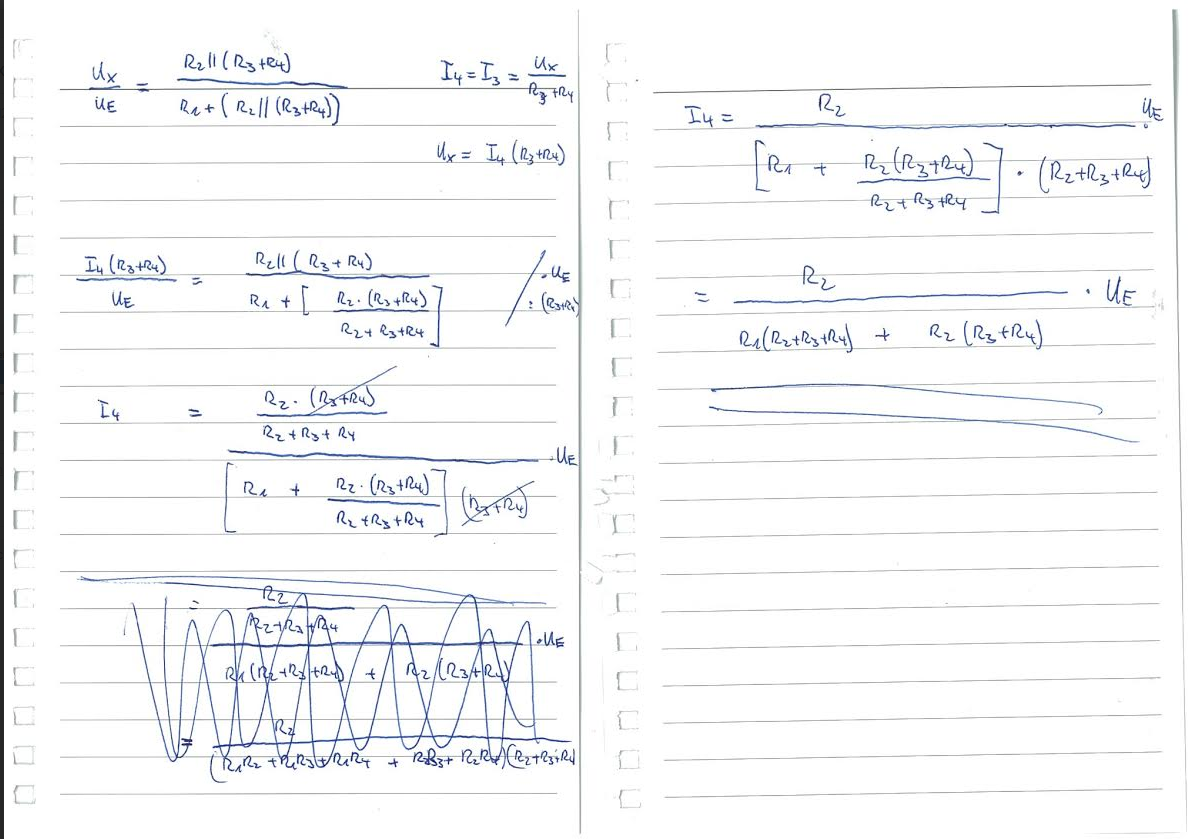 Ux/UE = R2||(R3+R4) / R1+(R2||(R3+R4))
I4 = I3 = Ux/R3+R4
Ux = I4 (R3+R4)
I4 (R3+R4)/UE = R2||(R3+R4) / R1 + [R2·(R3+R4) / R2+R3+R4]
/ ·UE
: (R3+R4)
I4 = R2·(R3+R4) / R2+R3+R4 / [R1 + R2·(R3+R4) / R2+R3+R4] (R3+R4) ·UE
= R2 / R2+R3+R4 / R1(R2+R3+R4) + R2(R3+R4) ·UE
= R2 / (R1R2 + R1R3 + R1R4 + R2R3 + R2R4)(R2+R3+R4)
I4 = R2 / [R1 + R2(R3+R4) / R2+R3+R4] · (R2+R3+R4) · UE
= R2 / R1(R2+R3+R4) + R2(R3+R4) · UE